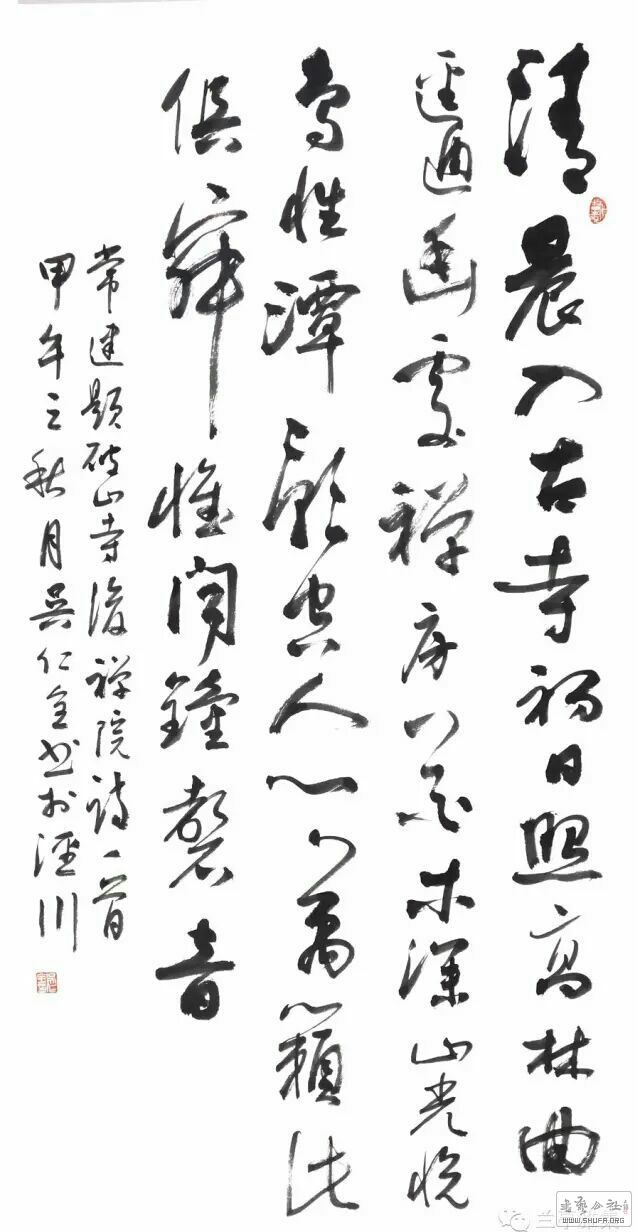 清晨入古寺初日照高林曲
逕通幽處禅房花木深山光悦
鸟性潭影空人心萬籟此
俱寂惟闻鐘磬音
常建題破山寺後禅院詩一首
甲午之秋月吴仁全书於涇川
書藝公社
WWW.SHUFA.ORG